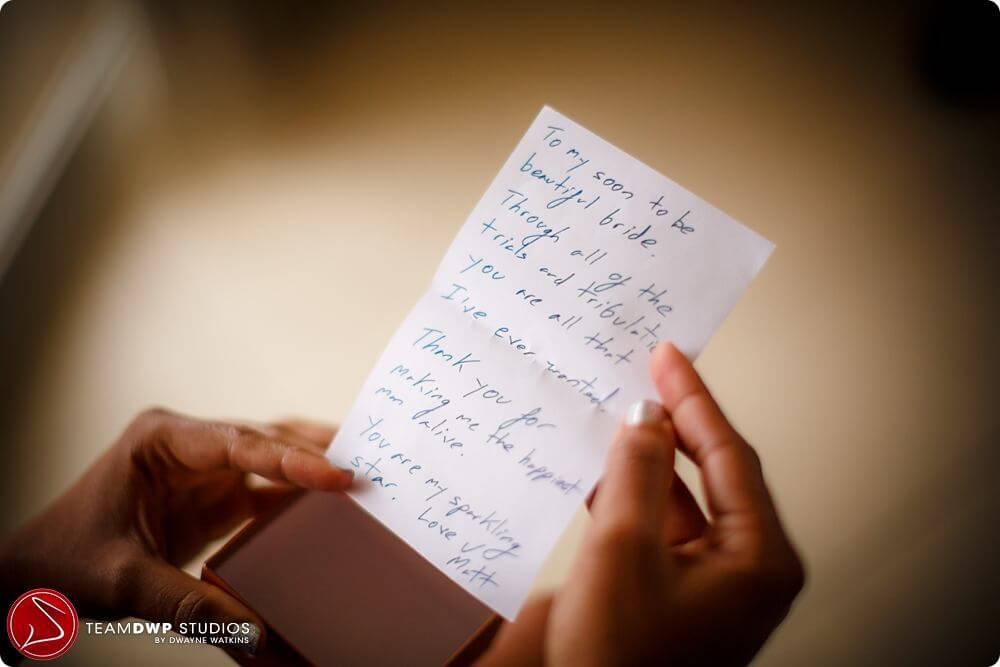 To my soon to be
beautiful bride.
Through all of the
trials and tribulatio
you are all that
I've ever wanted.
Thank you for
making me the happiest
man alive.
You are my sparkling
star.
Love
Matt
TEAMDWP STUDIOS
BY DWAYNE WATKINS